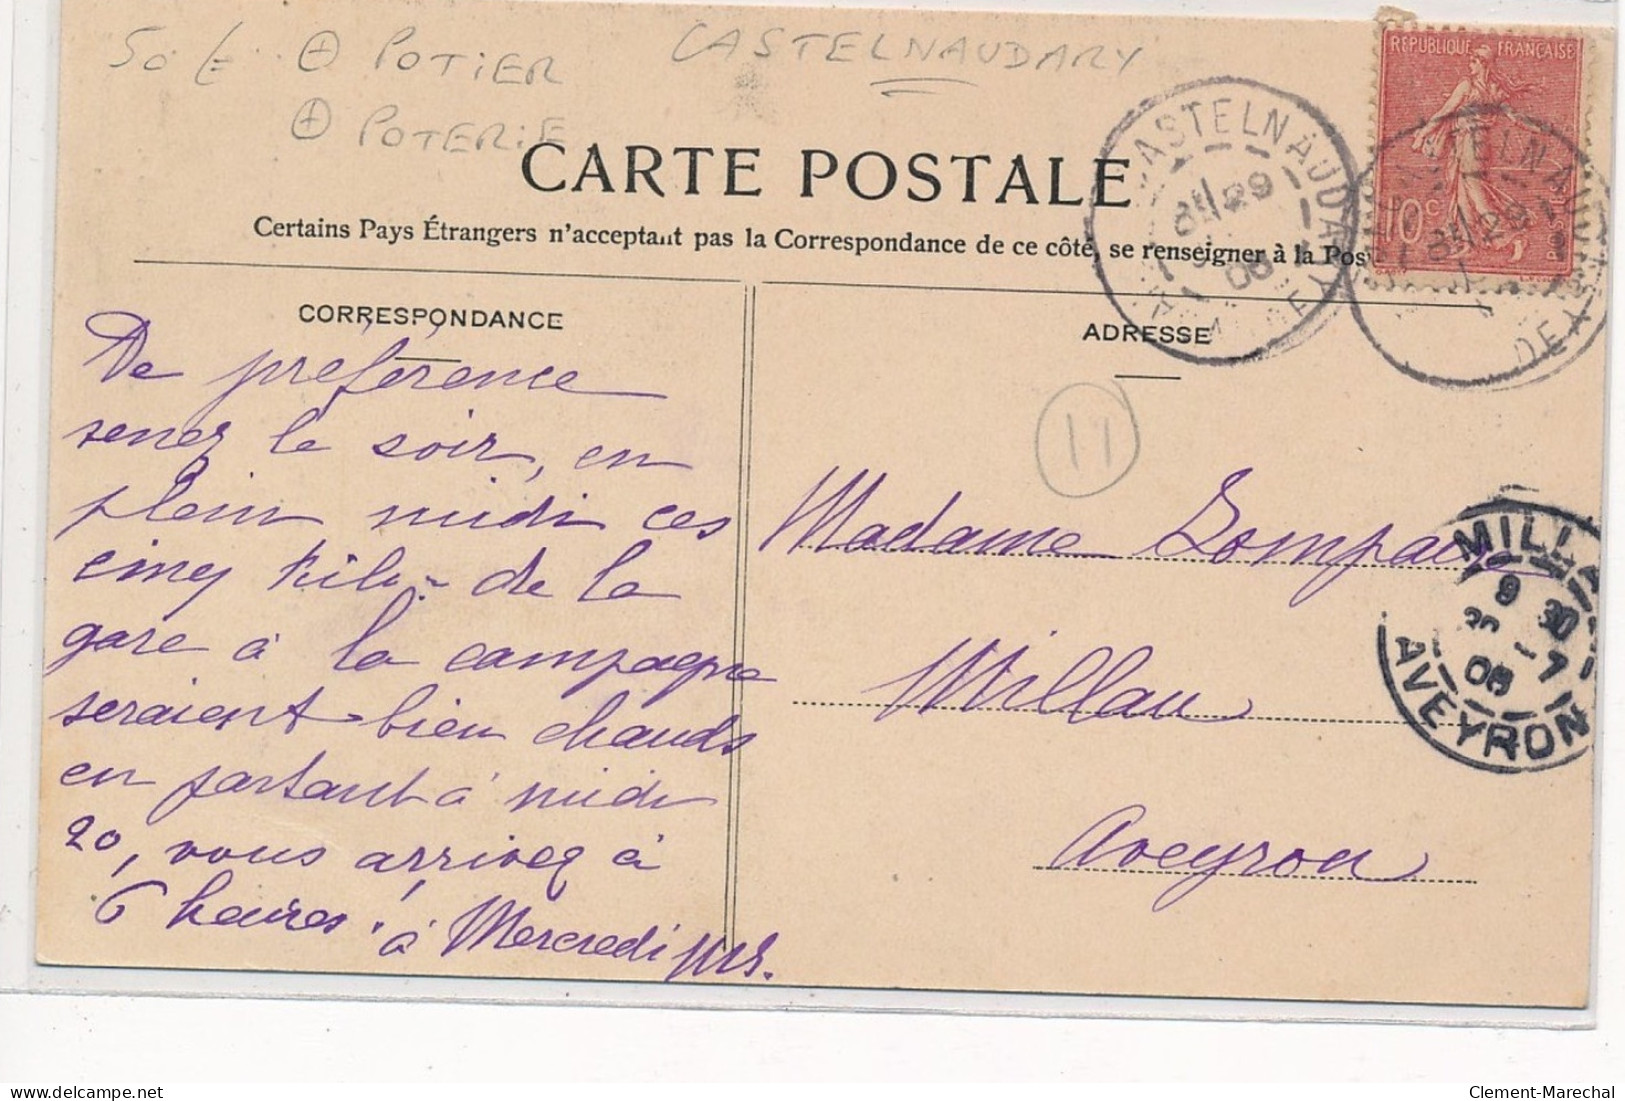 50 €
⊕ POTIER
CASTELNAUDARY
⊕ POTERIE
RÉPUBLIQUE FRANÇAISE
10 c
POSTES
CASTELNAUDARY
8H 29
06
CARTE POSTALE
Certains Pays Étrangers n'acceptant pas la Correspondance de ce côté, se renseigner à la Pos
CORRESPONDANCE
ADRESSE
11
De préférence
venez le soir, en
plein midi ces
cinq kilo- de la
gare à la campagne
seraient bien chauds
en partant à midi
20, vous arrivez à
6 heures. à Mercredi
Madame
Millau
Aveyron
MILLAU
9 30
30 7
06
AVEYRON
www.delcampe.net
Clement-Marechal